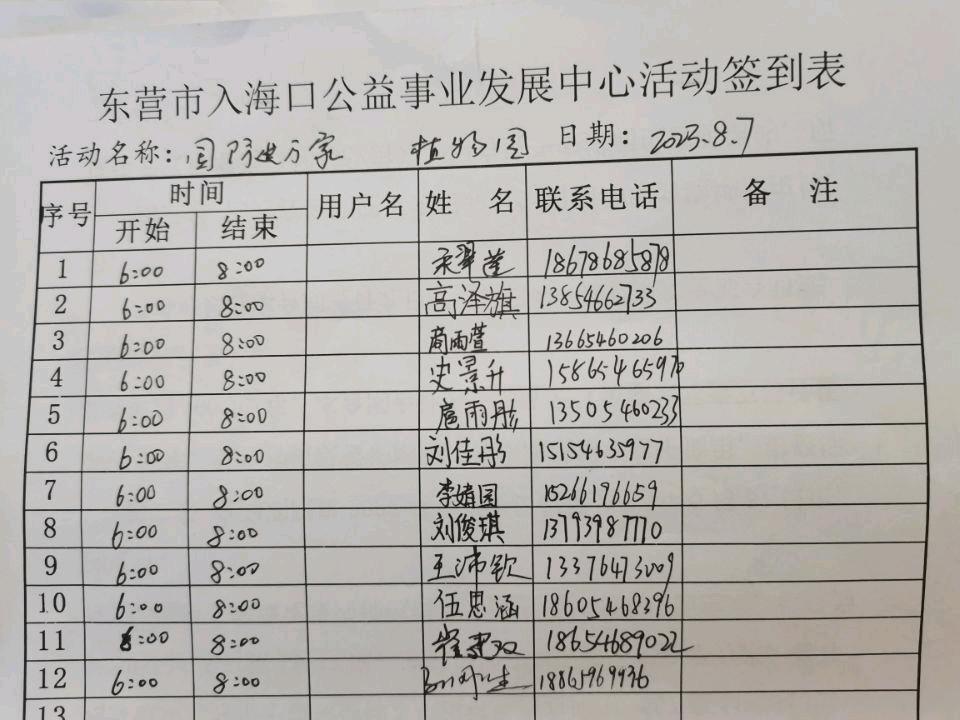 东营市入海口公益事业发展中心活动签到表
活动名称：国防进万家 植物园 日期：2023.8.7
序号 时间 用户名 姓名 联系电话 备注
开始 结束
1 6:00 8:00 18678685878
2 6:00 8:00 高泽旗 13854662733
3 6:00 8:00 周雨萱 13665460206
4 6:00 8:00 史景升 15865465970
5 6:00 8:00 扈雨彤 13505460233
6 6:00 8:00 刘佳彤 15154635977
7 6:00 8:00 李婧园 15266196659
8 6:00 8:00 刘俊琪 13793987710
9 6:00 8:00 王沛钦 13376473009
10 6:00 8:00 伍思涵 18605468396
11 6:00 8:00 18654689022
12 6:00 8:00 18865969936
13